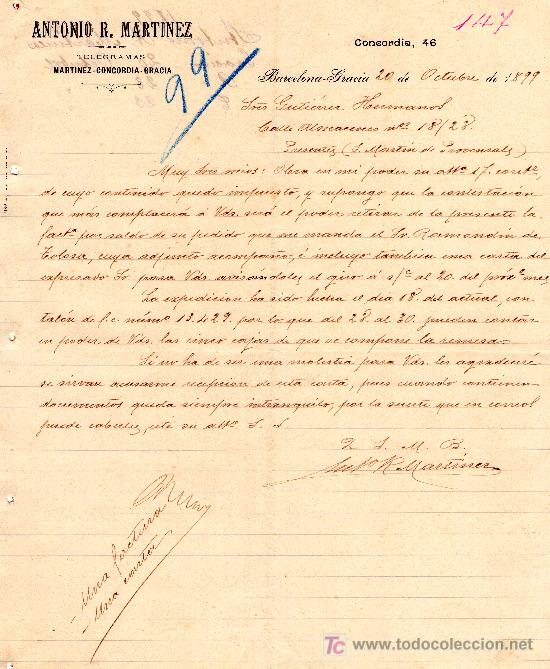 ANTONIO R. MARTINEZ
TELEGRAMAS
MARTINEZ-CONCORDIA-GRACIA
99
147
Concordia, 46
Barcelona-Gracia 20 de Octubre de 1899
Sres Gutiérrez Hermanos
Calle Almacenes nº 18/28.
Presentes (S. Martín de Provensals)
Muy Sres mios: Obra en mi poder su attª 17. corrte.
de cuyo contenido quedo impuesto, y supongo que la contestación
que más complacerá á Vds. será el poder retirar de la presente la
factª por saldo de su pedido que me manda el Sr. Raimondín de
Tolosa, cuya adjunto acompaño, é incluyo tambien una carta del
expresado Sr. para Vds. avisandoles el giro á s/c al 20 del próxº mes
La expedicion ha sido hecha el dia 18 del actual, con
talón de f.c. númº 13.429. por lo que del 28 al 30 pueden contar
en poder de Vds. las cinco cajas de que se compone la remesa.
Si no ha de ser una molestia para Vds. les agradeceré
se sirvan acusarme recepcion de esta carta, pues cuando contienen
documentos queda siempre intranquilo, por la suerte que en correos
puede caberles, este su attº S. S.
Q. S. M. B.
Antº R Martinez
Una factura
Una carta
www.todocoleccion.net